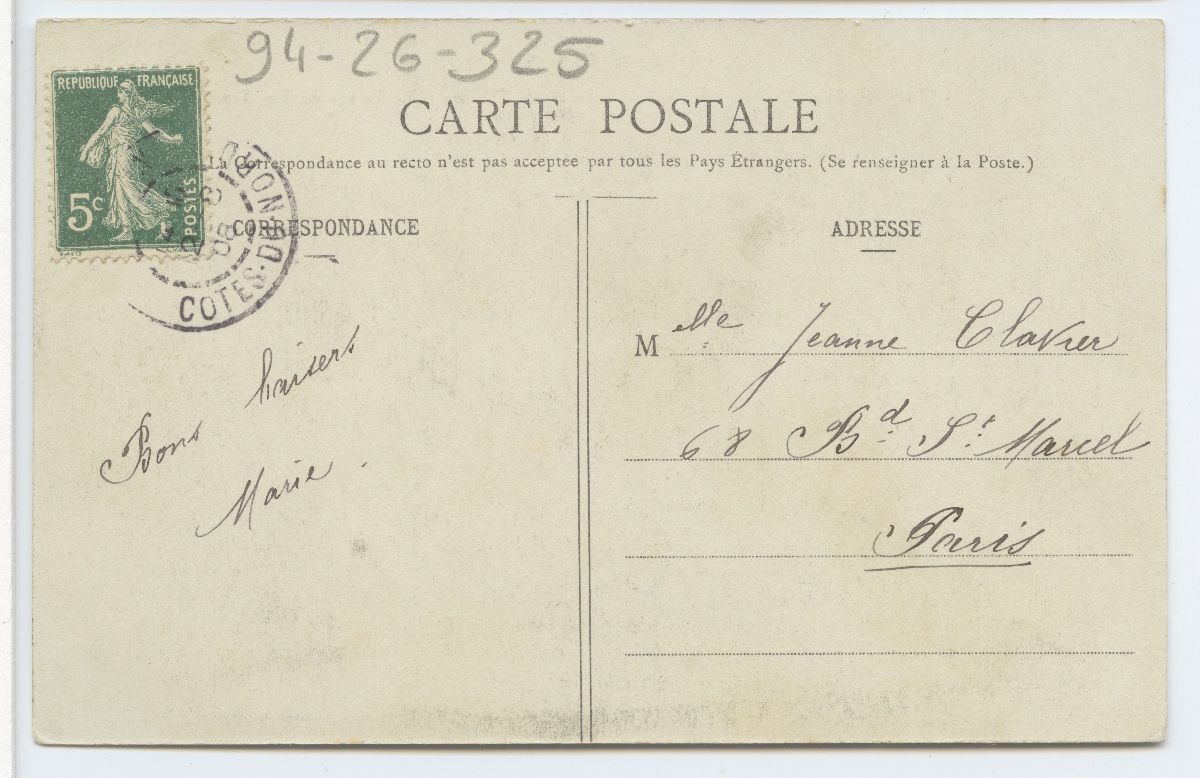 94-26-325
REPUBLIQUE FRANÇAISE
5c
POSTES
CARTE POSTALE
La Correspondance au recto n'est pas acceptee par tous les Pays Étrangers. (Se renseigner à la Poste.)
COTES-DU-NORD
08
CORRESPONDANCE
Bons baisers
Marie.
ADRESSE
Melle Jeanne Clavier
68 Bd St Marcel
Paris